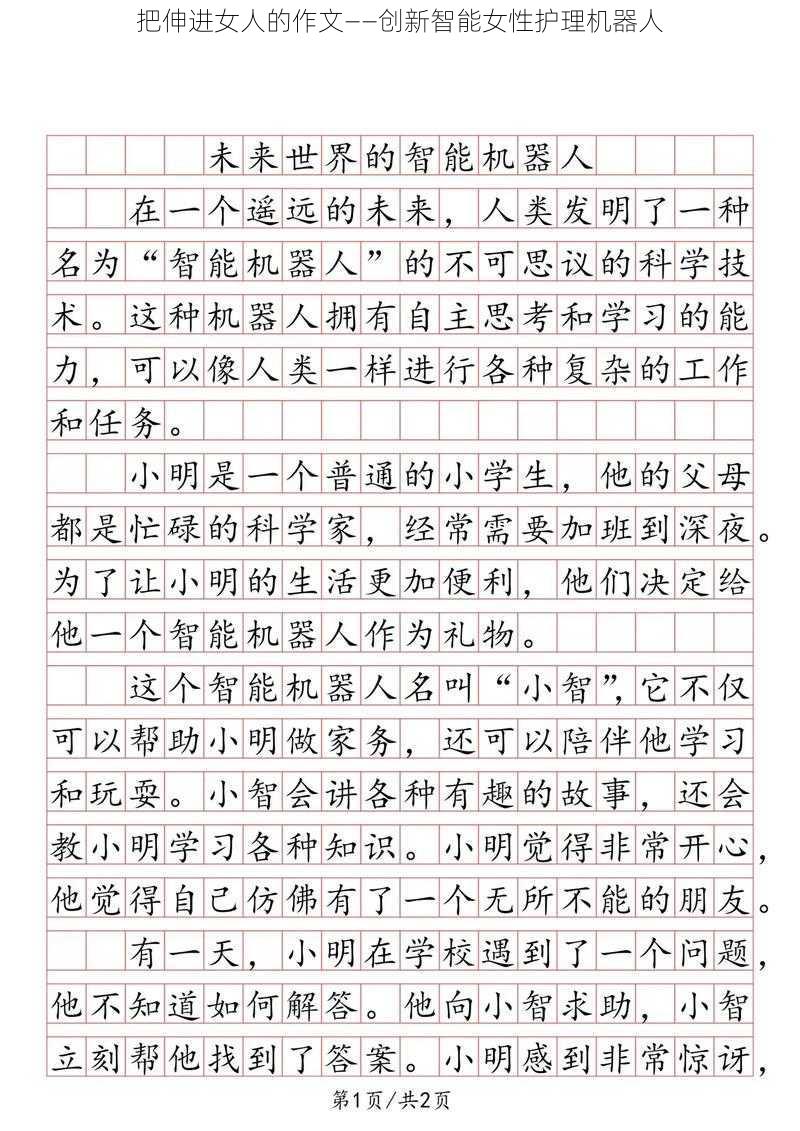 把伸进女人的作文——创新智能女性护理机器人
未来世界的智能机器人
在一个遥远的未来，人类发明了一种
名为“智能机器人”的不可思议的科学技
术。这种机器人拥有自主思考和学习的能
力，可以像人类一样进行各种复杂的工作
和任务。
小明是一个普通的小学生，他的父母
都是忙碌的科学家，经常需要加班到深夜。
为了让小明的生活更加便利，他们决定给
他一个智能机器人作为礼物。
这个智能机器人名叫“小智”，它不仅
可以帮助小明做家务，还可以陪伴他学习
和玩耍。小智会讲各种有趣的故事，还会
教小明学习各种知识。小明觉得非常开心，
他觉得自己仿佛有了一个无所不能的朋友。
有一天，小明在学校遇到了一个问题，
他不知道如何解答。他向小智求助，小智
立刻帮他找到了答案。小明感到非常惊讶，
第1页/共2页